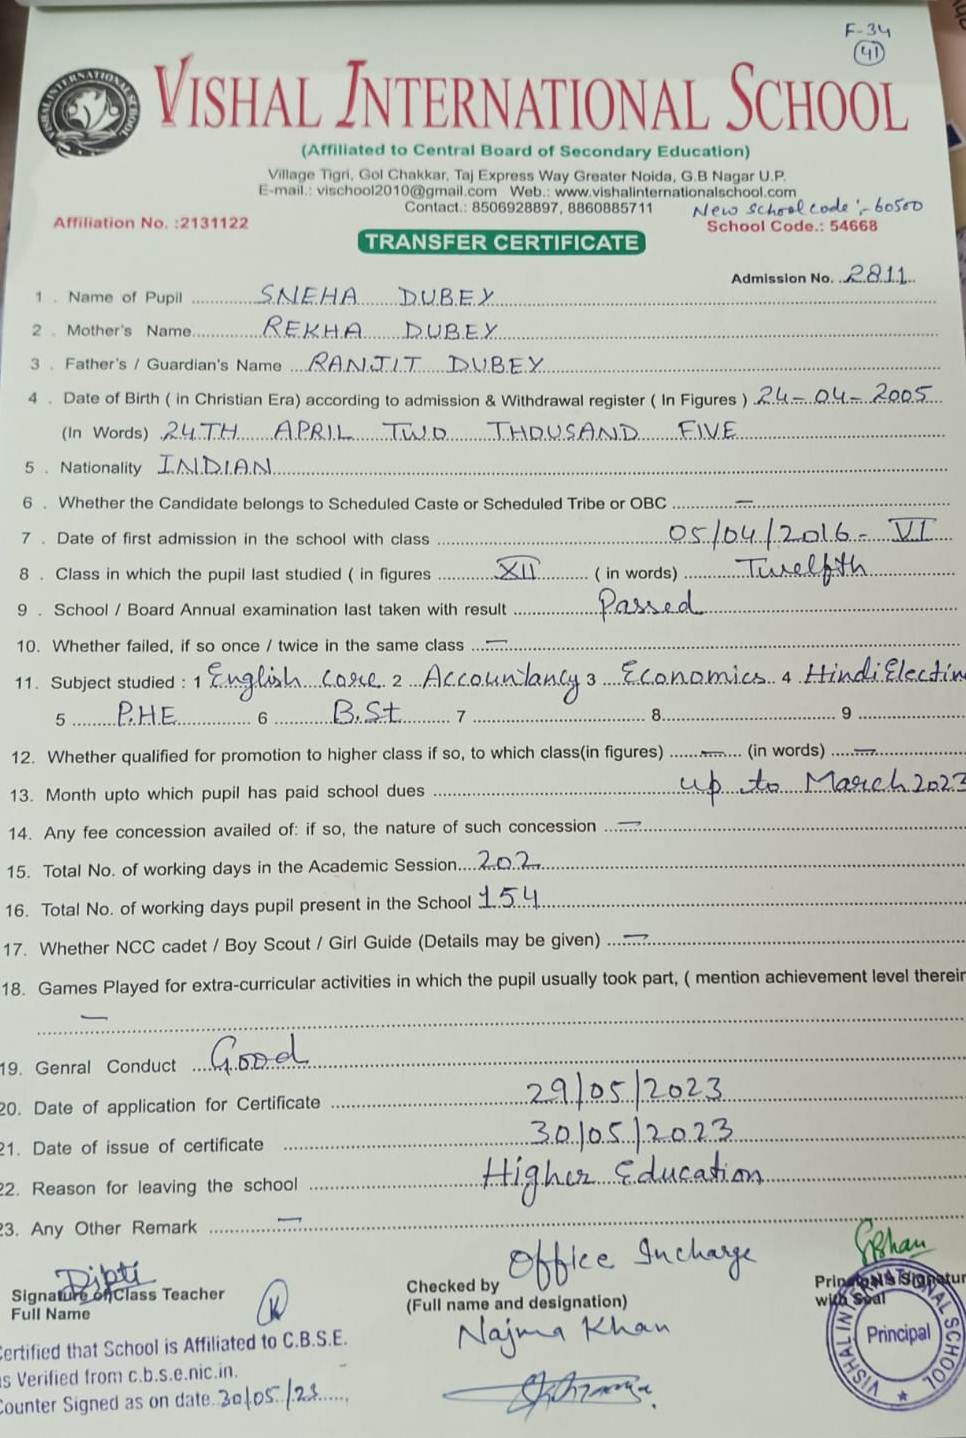 F-34
41
VISHAL INTERNATIONAL SCHOOL
VISHAL INTERNATIONAL SCHOOL
(Affiliated to Central Board of Secondary Education)
Village Tigri, Gol Chakkar, Taj Express Way Greater Noida, G.B Nagar U.P.
E-mail.: vischool2010@gmail.com Web.: www.vishalinternationalschool.com
Contact.: 8506928897, 8860885711
New school code :- 60500
Affiliation No. :2131122
School Code.: 54668
TRANSFER CERTIFICATE
Admission No. 2811
1 . Name of Pupil SNEHA DUBEY
2 . Mother's Name REKHA DUBEY
3 . Father's / Guardian's Name RANJIT DUBEY
4 . Date of Birth ( in Christian Era) according to admission & Withdrawal register ( In Figures ) 24-04-2005
(In Words) 24TH APRIL TWO THOUSAND FIVE
5 . Nationality INDIAN
6 . Whether the Candidate belongs to Scheduled Caste or Scheduled Tribe or OBC —
7 . Date of first admission in the school with class 05/04/2016 - VI
8 . Class in which the pupil last studied ( in figures XII ( in words) Twelfth
9 . School / Board Annual examination last taken with result Passed
10. Whether failed, if so once / twice in the same class —
11. Subject studied : 1 English core 2 Accountancy 3 Economics 4 Hindi Electin
5 P.HE 6 B.St 7 8 9
12. Whether qualified for promotion to higher class if so, to which class(in figures) — (in words) —
13. Month upto which pupil has paid school dues up to March 2023
14. Any fee concession availed of: if so, the nature of such concession —
15. Total No. of working days in the Academic Session 202
16. Total No. of working days pupil present in the School 154
17. Whether NCC cadet / Boy Scout / Girl Guide (Details may be given) —
18. Games Played for extra-curricular activities in which the pupil usually took part, ( mention achievement level therein
—
19. Genral Conduct Good
20. Date of application for Certificate 29/05/2023
21. Date of issue of certificate 30/05/2023
22. Reason for leaving the school Higher Education
23. Any Other Remark —
Dipti
Signature of Class Teacher
Full Name
Checked by Office Incharge
(Full name and designation)
Najma Khan
Principal's Signatur
with Seal
VISHAL INTERNATIONAL SCHOOL
Principal
Certified that School is Affiliated to C.B.S.E.
as Verified from c.b.s.e.nic.in.
Counter Signed as on date 30/05/23